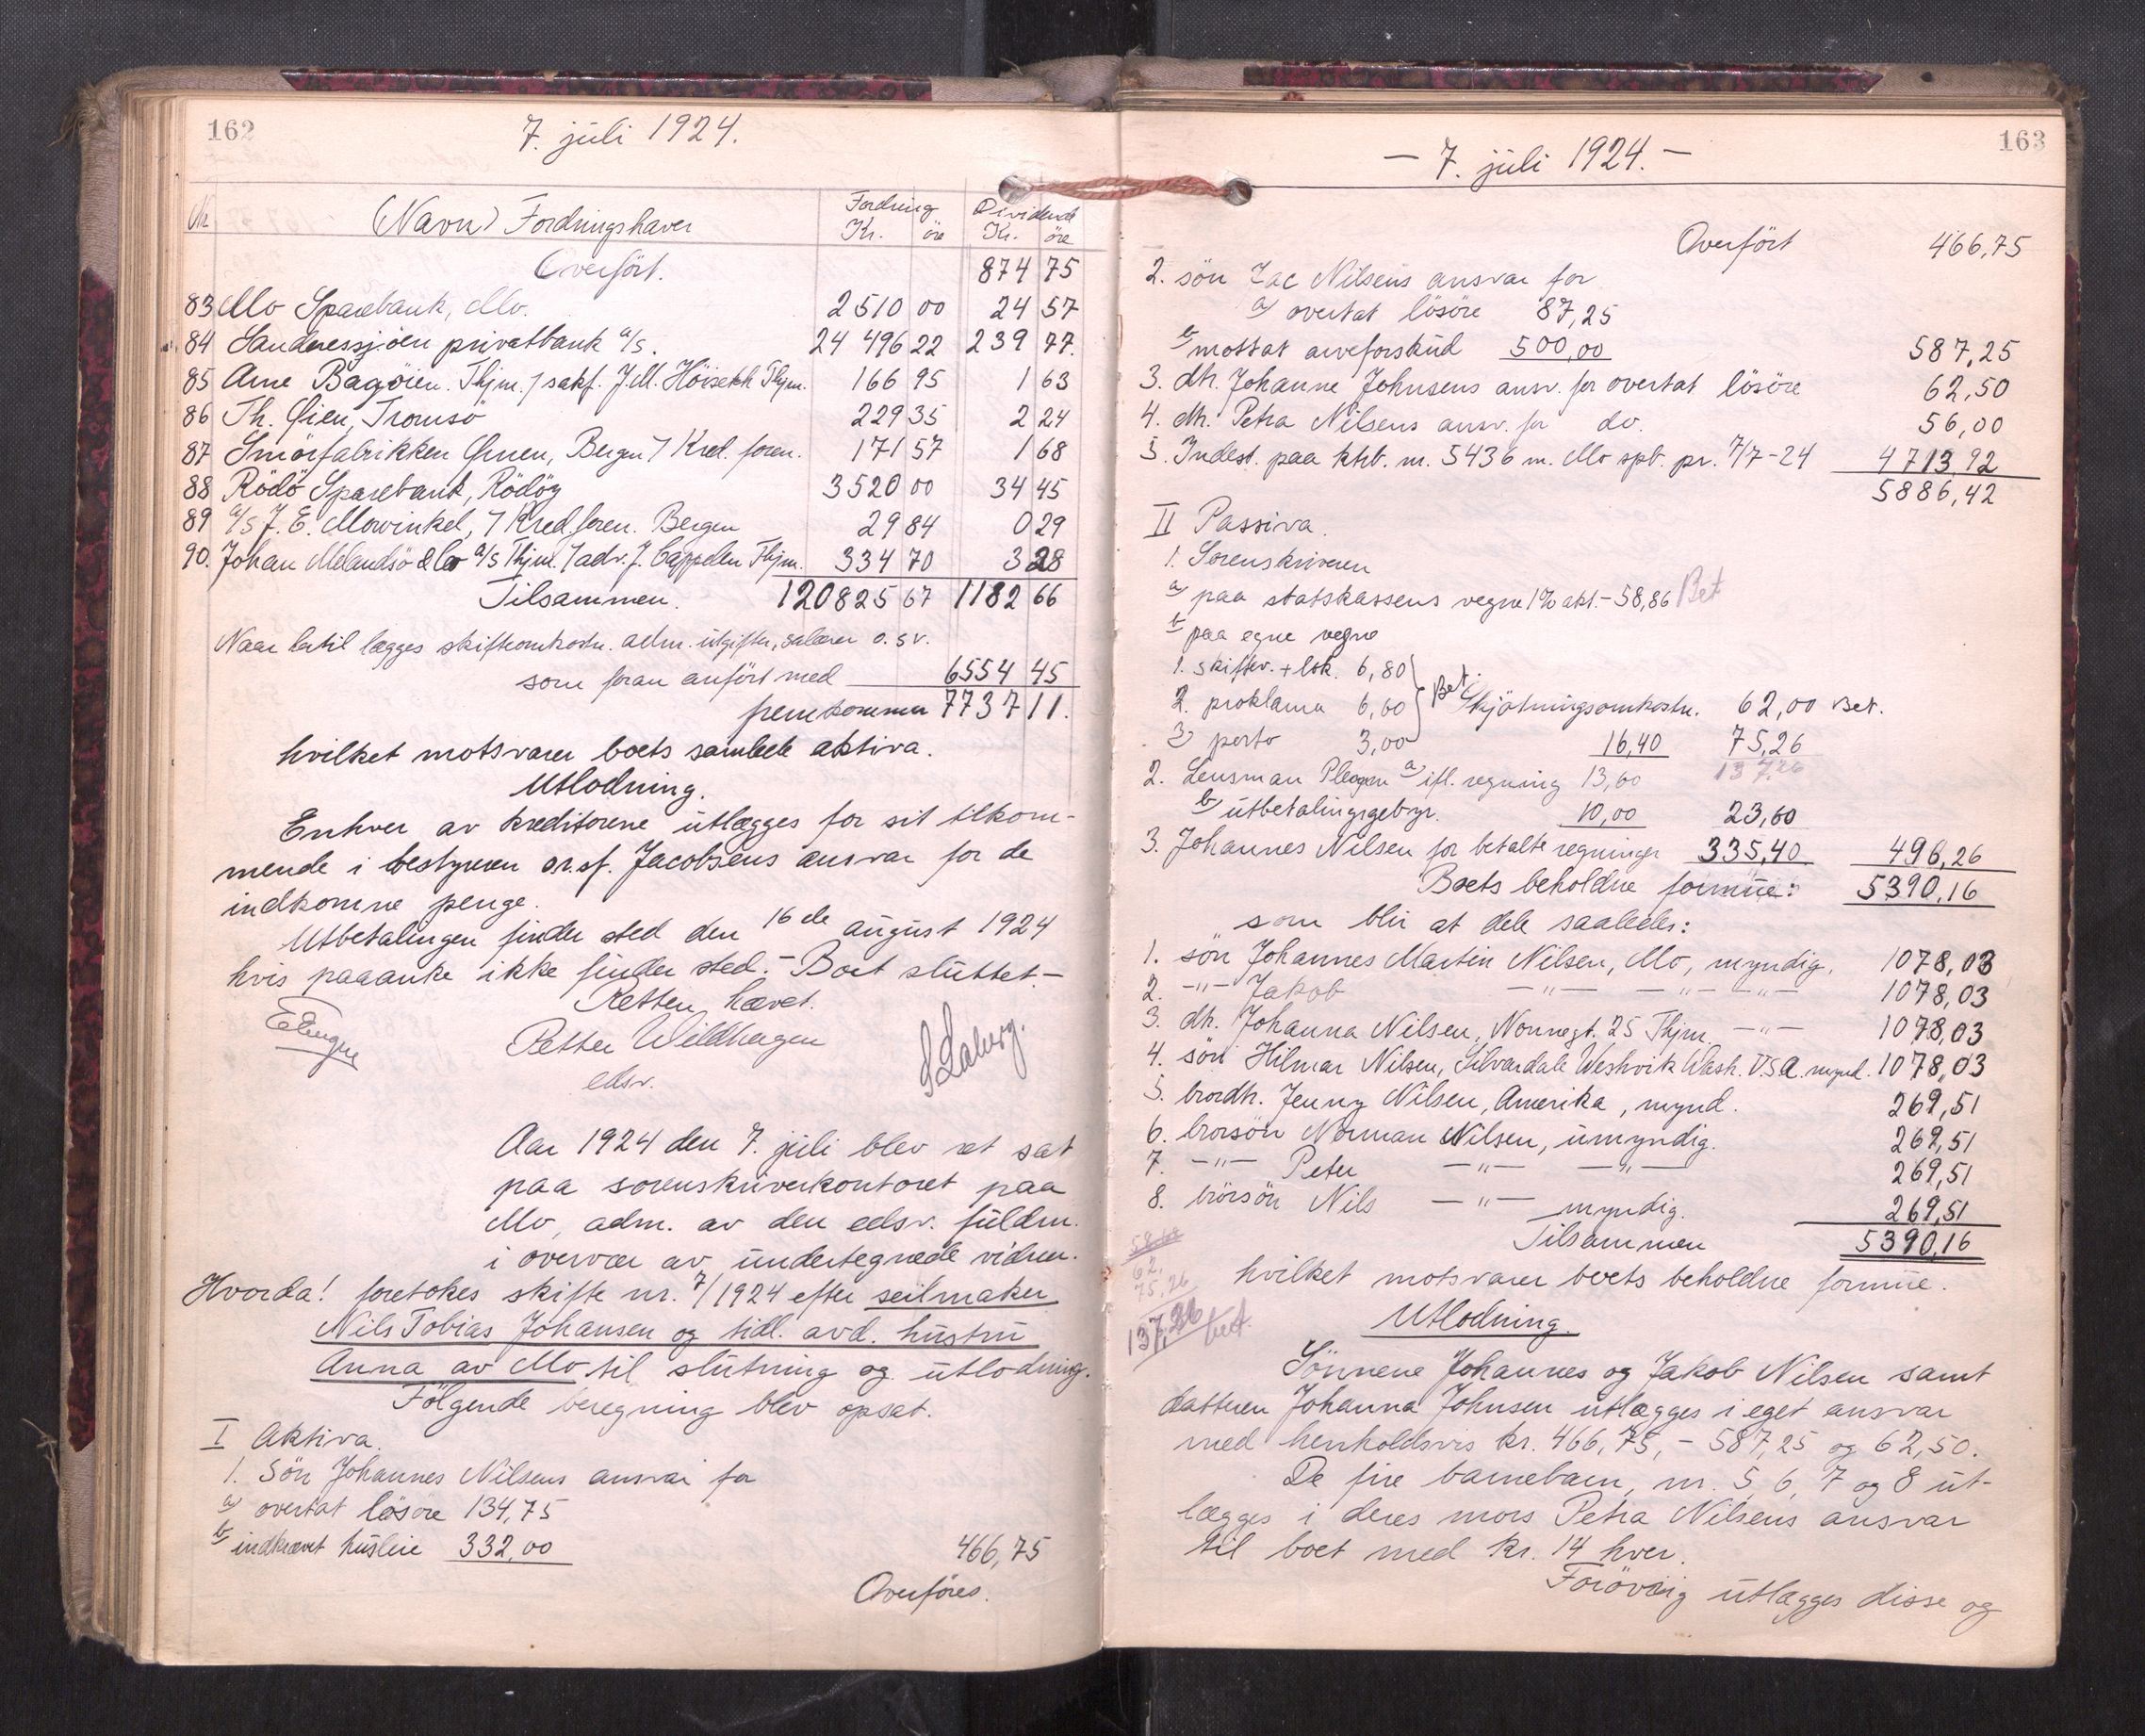 162
7. juli 1924.
Nr. (Navn) Fordringshaver Fordring Kr. öre Dividende Kr. öre
Overfört. 874 75
83 Mo Sparebank, Mo. 2510 00 24 57
84 Sandnessjøen privatbank a/s. 24 496 22 239 77.
85 Arne Bagöien. Thjm. / sakf. J.M. Höiseth Thjm. 166 95 1 63
86 Th. Öien, Tromsö 229 35 2 24
87 Smörfabrikken Ørnen, Bergen / Kred. foren. 171 57 1 68
88 Rödö Sparebank, Rödöy 3520 00 34 45
89 a/s J. E. Mowinkel, / Kredforen. Bergen 29 84 0 29
90. Johan Melandsö & Co a/s Thjm. / adv. J. Cappelen Thjm. 334 70 3 28
Tilsammen. 120825 67 1182 66
Naar hertil lægges skifteomkostn. adm. utgifter, salærer o. s v.
som foran anfört med 6554 45
fremkommer 7737 11.
hvilket motsvarer boets samlede aktiva.
Utlodning.
Enhver av kreditorene utlægges for sit tilkom-
mende i bestyreren o.r.sf. Jacobsens ansvar for de
indkomne penge.
Utbetalingen finder sted den 16de august 1924
hvis paaanke ikke finder sted. – Boet sluttet. –
Retten hævet.
Petter Wildhagen
edsv.
Aar 1924 den 7. juli blev ret sat
paa sorenskriverkontoret paa
Mo, adm. av den edsv. fuldm.
i overvær av undertegnede vidner.
Hvorda! foretokes skifte nr. 7/1924 efter seilmaker
Nils Tobias Johansen og tidl. avd. hustru
Anna av Mo til slutning og utlodning.
Følgende beregning blev opsat.
I Aktiva.
1. Sön Johannes Nilsens ansvar for
a) overtat lösöre 134,75
b) indkrævet husleie 332,00 466,75
Overföres.
163
– 7. juli 1924. –
Overfört 466,75
2. sön Jac Nilsens ansvar for
a) overtat lösöre 87,25
b) mottat arveforskud 500,00 587,25
3. dtr. Johanne Johnsens ansv. for overtat lösöre 62,50
4. dtr. Petra Nilsens ansv. for do. 56,00
5. Indest. paa ktrb. nr. 5436 m. Mo spb. pr. 7/7-24 4713,92
5886,42
II Passiva.
1. Sorenskriveren
a) paa statskassens vegne 1% akt. – 58,86 Bet
b) paa egne vegne
1. skiftev. + lok. 6,80
2. proklama 6,60 Bet. Skjötningsomkostn. 62,00 Bet.
3) porto 3,00 16,40 75,26
137,26
2. Lensman Pleym a) ifl. regning 13,60
b) utbetalingsgebyr. 10,00 23,60
3. Johannes Nilsen for betalte regninger 335,40 496,26
Boets beholdne formue: 5390,16
som blir at dele saaledes:
1. sön Johannes Martin Nilsen, Mo, myndig. 1078,03
2. –"– Jakob –"– –"– –"– 1078,03
3. dtr. Johanna Nilsen, Nonnegt. 25 Thjm. –"– 1078,03
4. sön Hilmar Nilsen, Silvardale Weshvik Wash. U.S.A. mynd. 1078,03
5. brordtr. Jenny Nilsen, Amerika, mynd. 269,51
6. brorsön Norman Nilsen, umyndig. 269,51
7. –"– Peter –"– –"– 269,51
8. brorsön Nils –"– myndig. 269,51
Tilsammen 5390,16
62,
75,26
137,26 bet.
hvilket motsvarer boets beholdne formue.
Utlodning.
Sönnene Johannes og Jakob Nilsen samt
datteren Johanna Johnsen utlægges i eget ansvar
med henholdsvis kr. 466,75, – 587,25 og 62,50.
De fire barnebarn, nr. 5, 6, 7 og 8 ut-
lægges i deres mors Petra Nilsens ansvar
til boet med kr. 14 hver.
Forövrig utlægges disse og